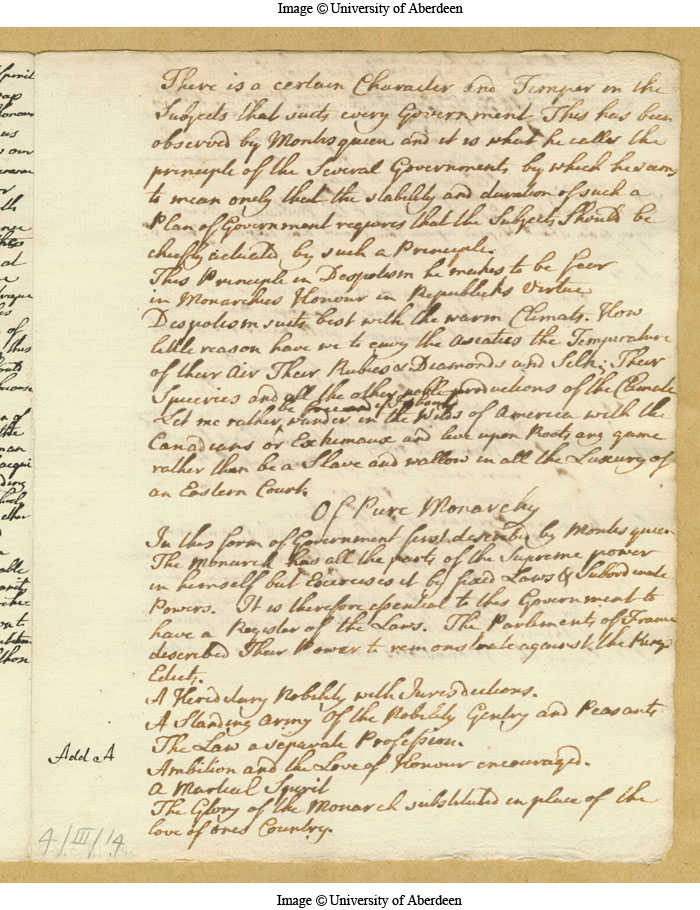 Image © University of Aberdeen
There is a certain Character and Temper in the
Subjects that suits every Government This has been
observed by Montesqueen and it is what he calls the
principle of the Several Governments by which he seems
to mean onely that the stability and duration of such a
Plan of Government requires that the Subjects Should be
chiefly acticated by such a Principle.
This Principle in Despotism he makes to be fear
in Monarchies Honour in Republicks Virtue
Despotism suits best with the warm Climats. How
little reason have we to envy the Asiaticks the Temperature
of their Air Their Rubies & Diamonds and Silk; Their
Spiceries and all the other noble productions of the Climate
be free and
Let me rather, wander in the Wilds of America with the
Canadians or Eskimaux and live upon Roots and game
rather than be a Slave and wallow in all the Luxury of
an Eastern Court.
Of Pure Monarchy
In this form of Government first described by Montesqueen
The Monarch has all the parts of the Supreme power
in himself but Excercises it be fixed Laws & Subordinate
Powers. It is therefore essential to this Government to
have a Register of the Laws. The Parliments of France
described Their Power to remonstrate against the Kings
Edicts.
A Hereditary Nobility with Jurisdictions.
A Standing army Of the Nobility Gentry and Peasants
The Law a separate Profession.
Add A
Ambition and the Love of Honour encouraged.
a Martial Spirit
The Glory of the Monarch substituted in place of the
love of ones Country.
4/III/14
Image © University of Aberdeen